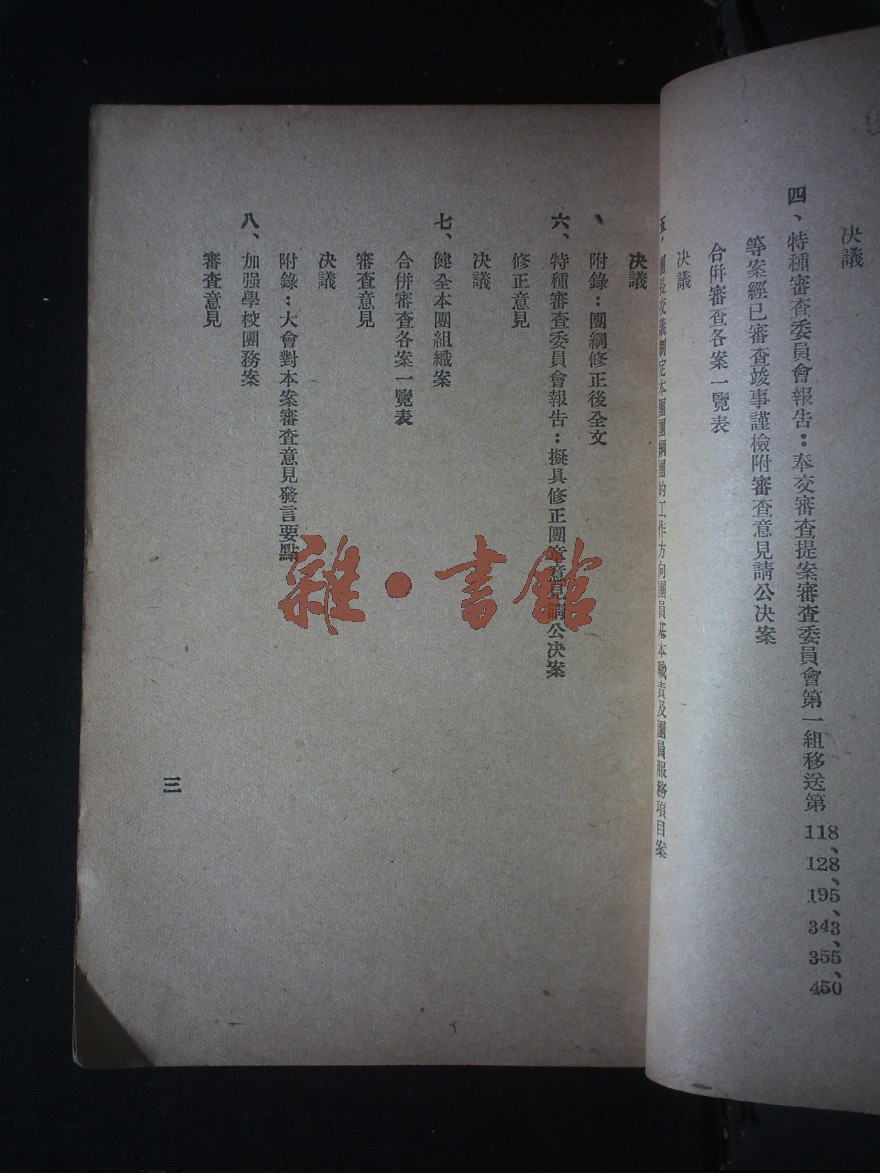 決議
四、特種審查委員會報告：奉交審查提案審查委員會第一組移送第118、128、195、343、355、450
等案經已審查竣事謹檢附審查意見請公決案
合併審查各案一覽表
決議
五、團長交議制定本團團綱團的工作方向團員基本職責及團員服務項目案
決議
附錄：團綱修正後全文
六、特種審查委員會報告：擬具修正團章意見請公決案
修正意見
決議
七、健全本團組織案
合併審查各案一覽表
審查意見
決議
附錄：大會對本案審查意見發言要點
八、加强學校團務案
審查意見
三
雜·書館